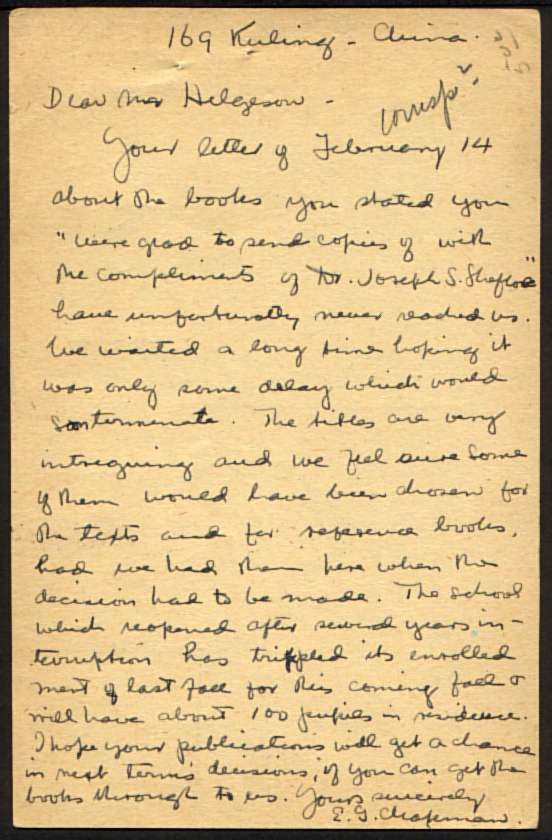 169 Kuling - China.
Dear Mr Helgeson -
corresp?
Your letter of February 14
about the books you stated you
"were glad to send copies of with
the compliments of Dr. Joseph S. Shefloe"
have unfortunatly never reached us.
We waited a long time hoping it
was only some delay which would
soon terminate. The titles are very
intreguing and we feel sure some
of them would have been chosen for
the texts and for reference books,
had we had them here when the
decision had to be made. The school
which reopened after several years in-
terruption has trippled its enrolled
ment of last fall for this coming fall &
will have about 100 pupils in residence.
I hope your publications will get a chance
in next term's decisions, if you can get the
books through to us. Yours sincerely
E. G. Chapman.